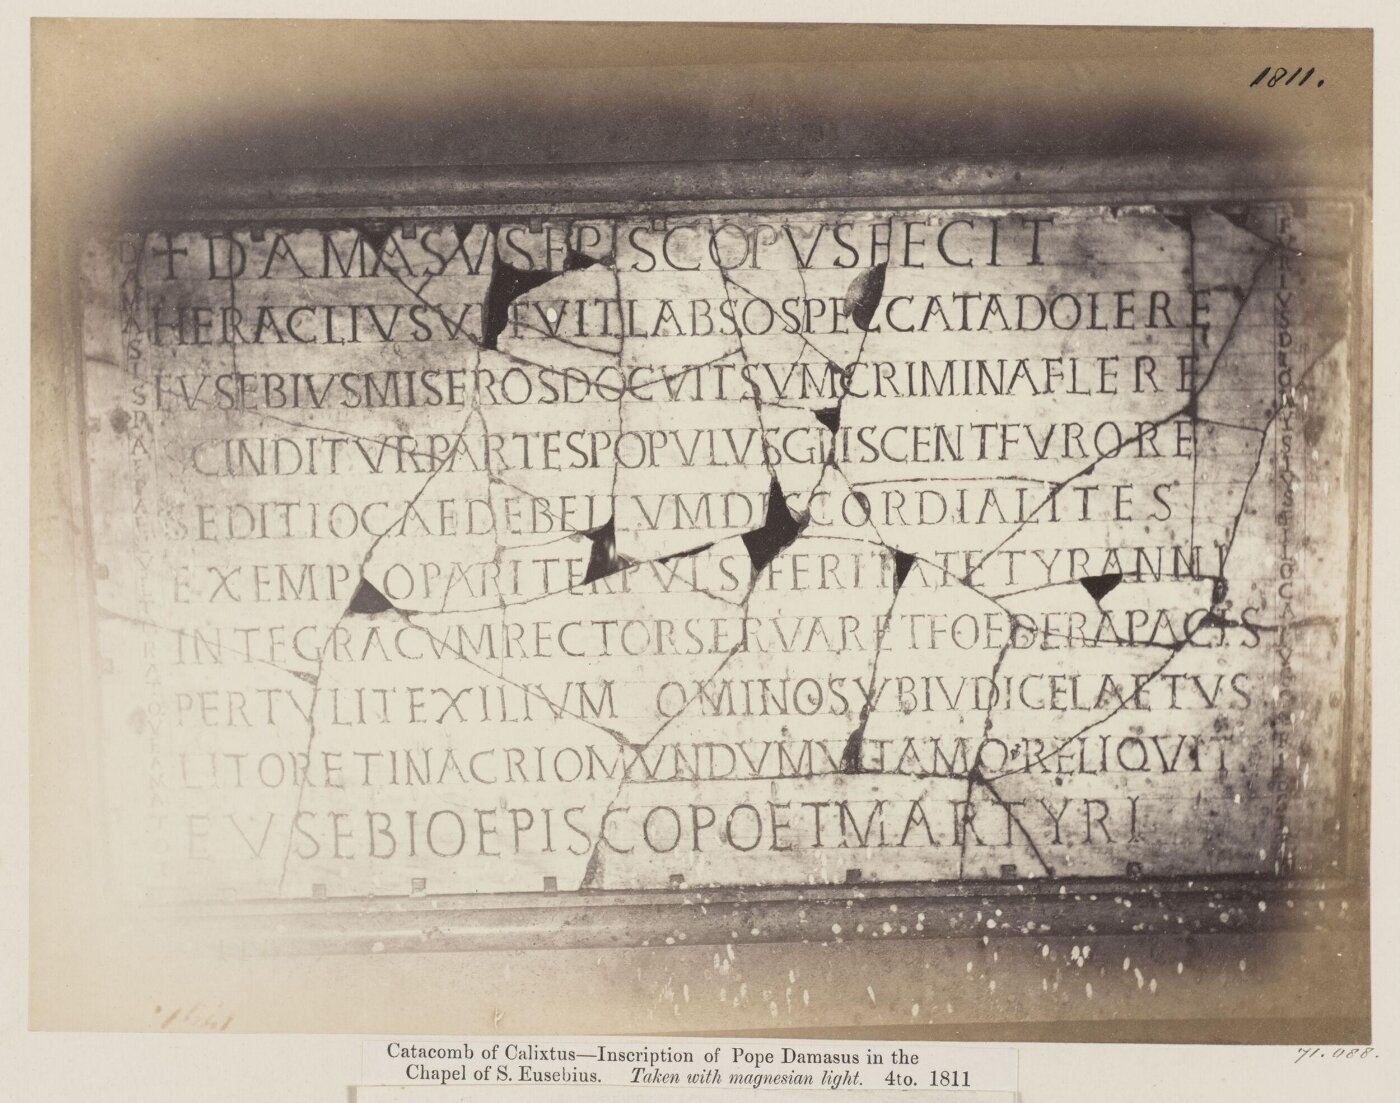 1811.
+ DAMASVSEPISCOPVSFECIT
HERACLIVSVETVITLABSOSPECCATADOLERE
EVSEBIVSMISEROSDOCVITSVMCRIMINAFLERE
SCINDITVRPARTESPOPVLVSGLISCENTFVRORE
SEDITIOCAEDEBELLVMDISCORDIALITES
EXEMPLOPARITERPVLSIFERITATETYRANNI
INTEGRACVMRECTORSERVARETFOEDERAPACIS
PERTVLITEXILIVM OMINOSVBIVDICELAETVS
LITORETINACRIOMVNDVMVITAMQRELIQVIT
EVSEBIOEPISCOPOETMARTYRI
Catacomb of Calixtus—Inscription of Pope Damasus in the
Chapel of S. Eusebius. Taken with magnesian light. 4to. 1811
71.088.